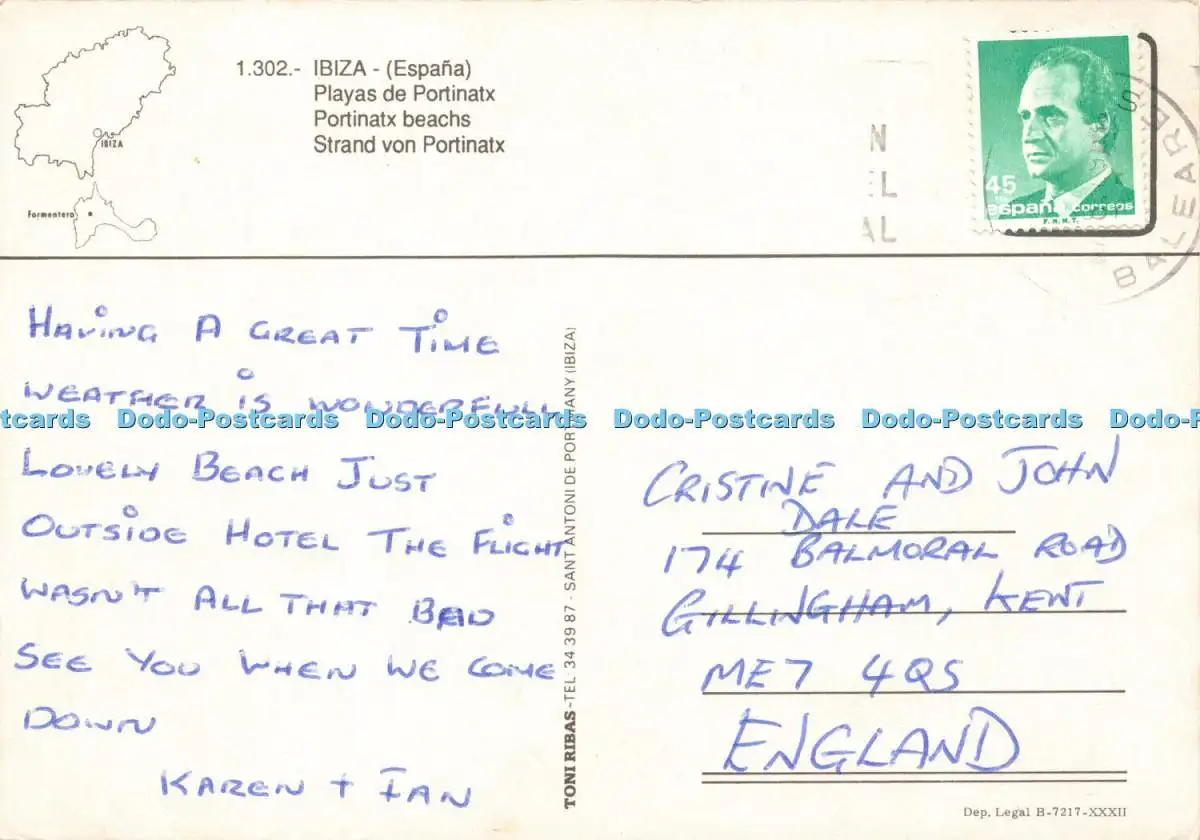 1.302.- IBIZA - (España)
Playas de Portinatx
Portinatx beachs
Strand von Portinatx
IBIZA
Formentera
N
EL
AL
45
españa correos
F.N.M.T.
BALEARES
HAViNG A GREAT TiME
WEATHER iS WONDERFULL
LOVELY BEACH JUST
OUTSiDE HOTEL THE FLiGHT
WASN'T ALL THAT BAD
SEE YOU WHEN WE COME
DOWN
KAREN + IAN
TONI RIBAS - TEL. 34 39 87 - SANT ANTONI DE PORTMANY (IBIZA)
CRISTINE AND JOHN
DALE
174 BALMORAL ROAD
GILLINGHAM, KENT
ME7 4QS
ENGLAND
Dep. Legal B-7217-XXXII
Dodo-Postcards Dodo-Postcards Dodo-Postcards Dodo-Postcards